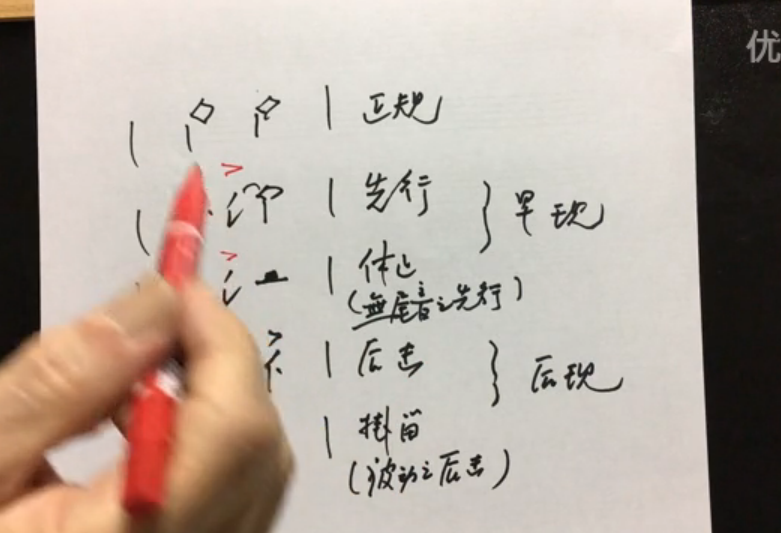 优
正规
先行
早现
休止
(無尾音之先行)
后击
后现
掛留
(被动之后击)